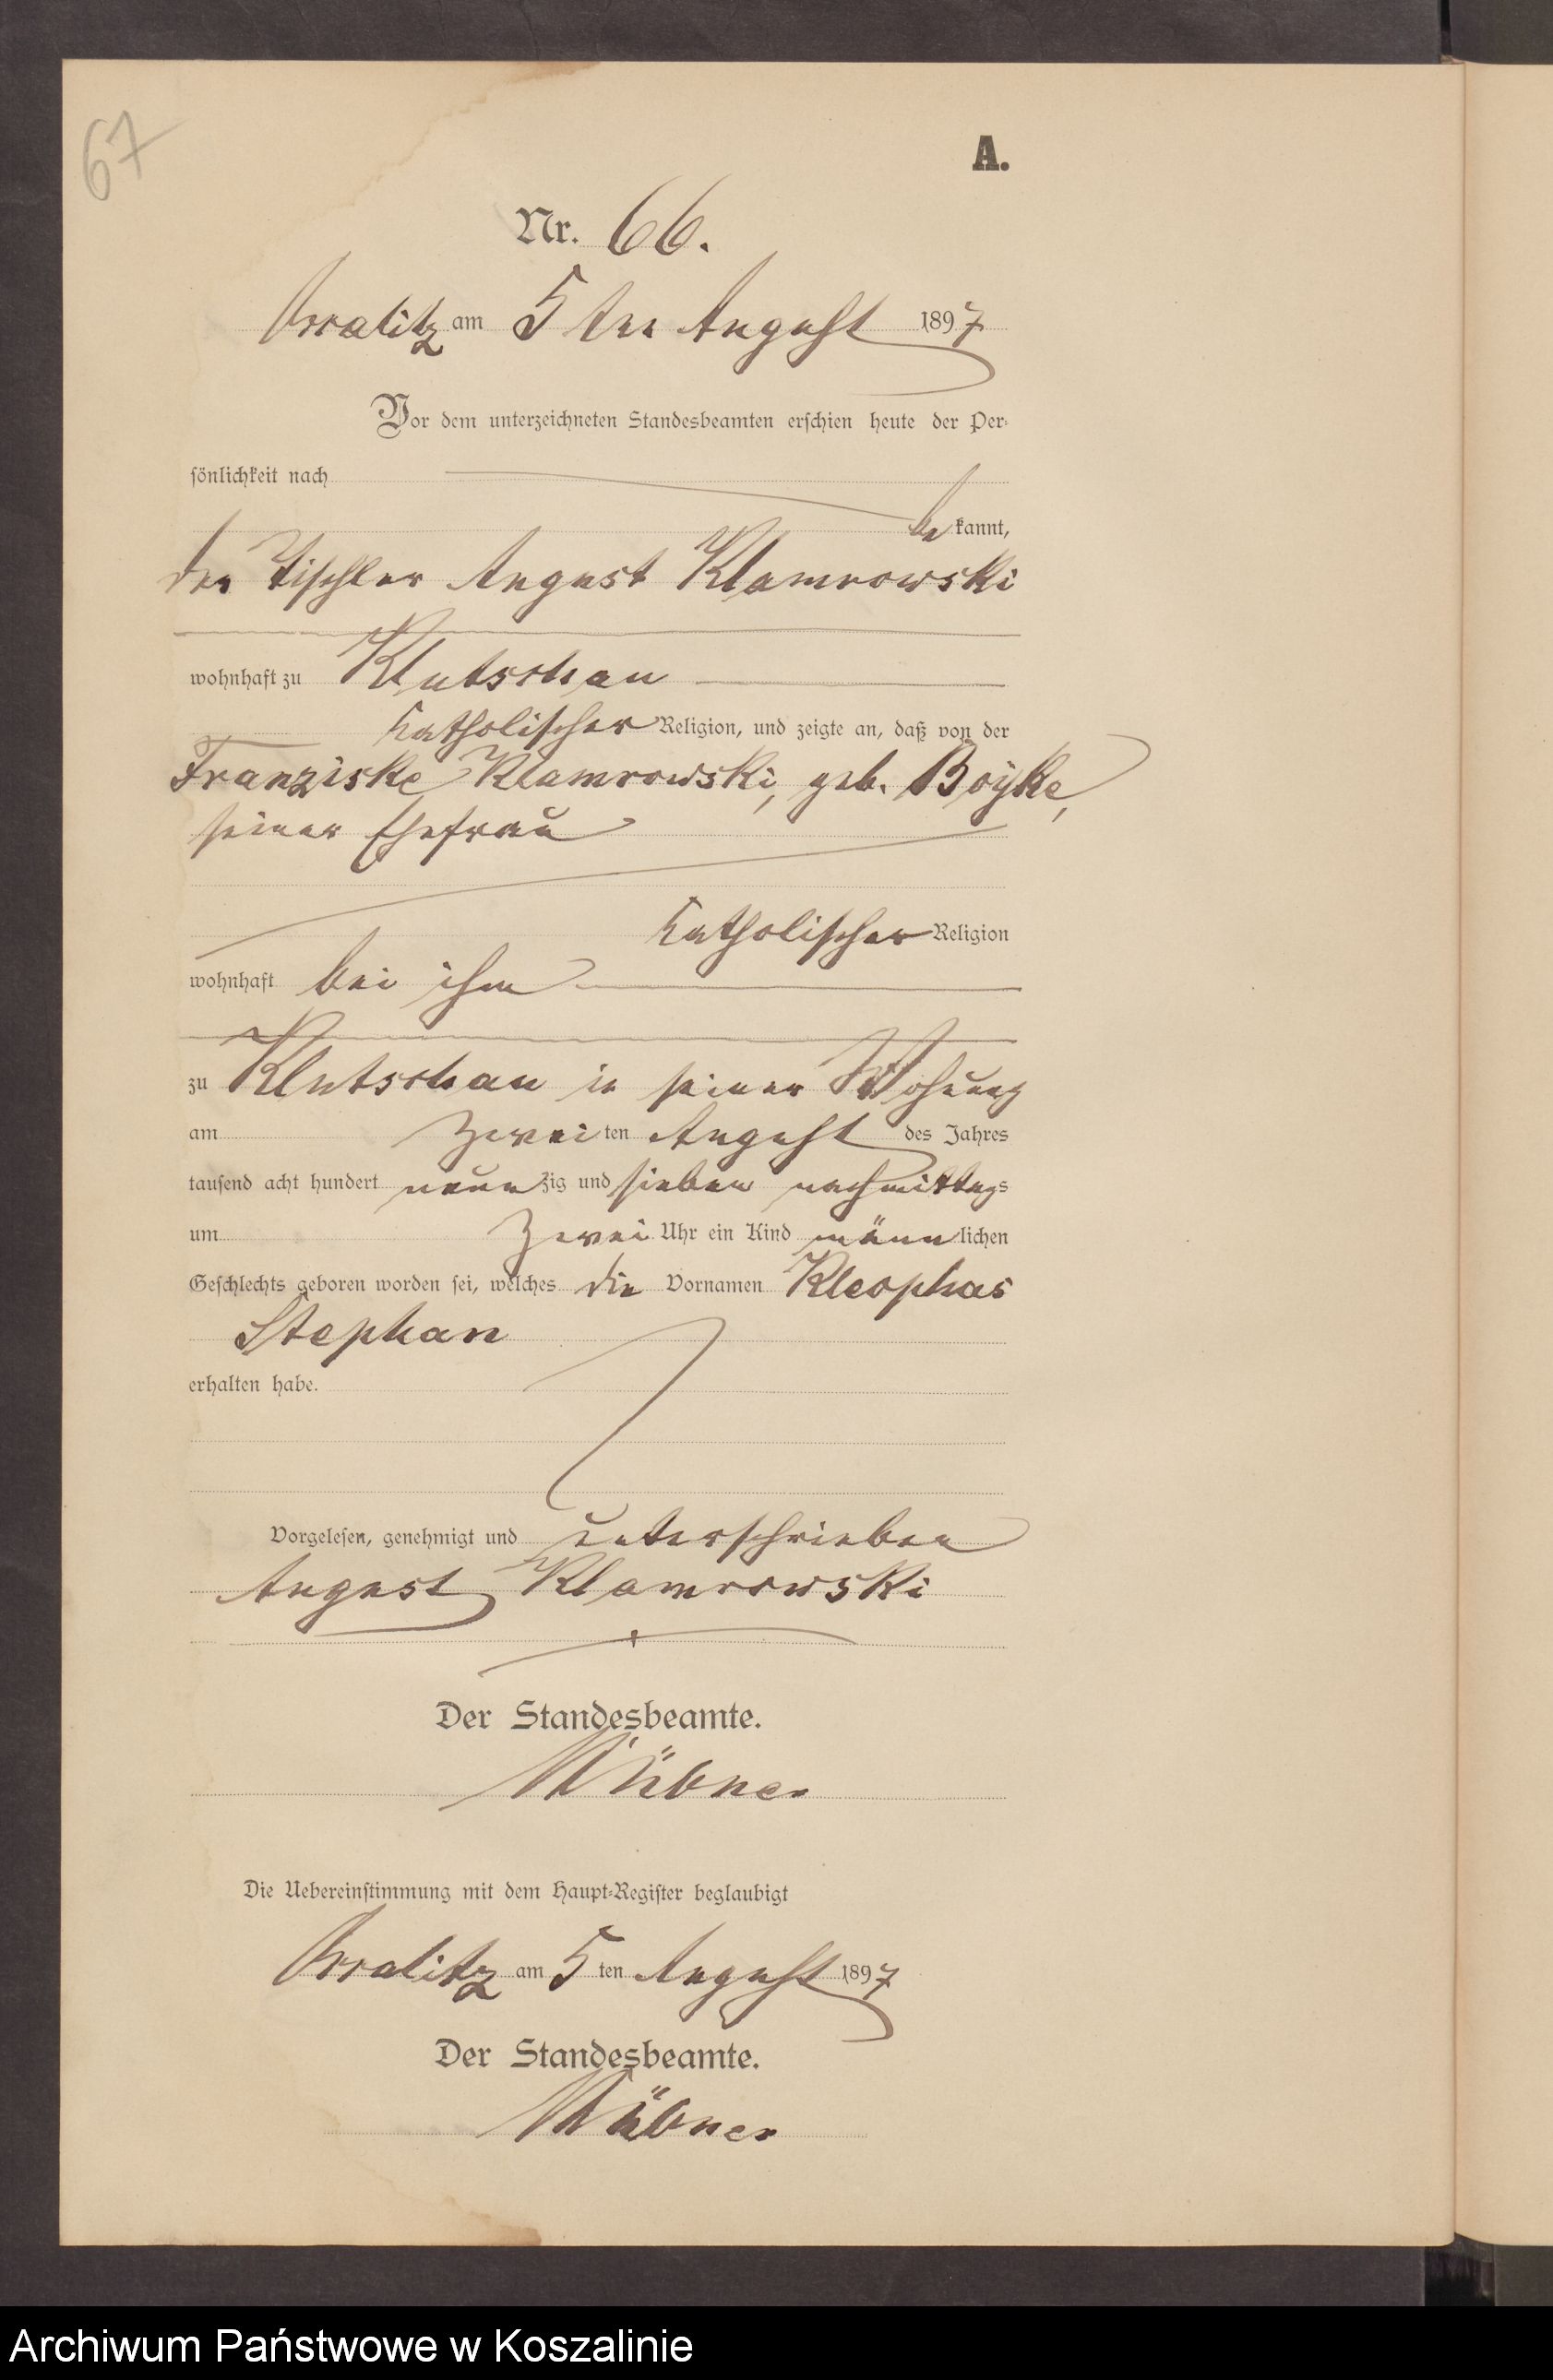 67
A.
Nr. 66.
am 5 ten August 1897
Vor dem unterzeichneten Standesbeamten erschien heute der Per-
sönlichkeit nach
be kannt,
der Tischler August Klamrowski
wohnhaft zu Klutschau
katholischer Religion, und zeigte an, daß von der
Franziske Klamrowski, geb. Boyke,
seiner Ehefrau
katholischer Religion
wohnhaft bei ihm
zu Klutschau in seiner Wohung
am zwei ten August des Jahres
tausend acht hundert neun zig und sieben nachmittags
um zwei Uhr ein Kind männ lichen
Geschlechts geboren worden sei, welches die Vornamen Kleophas
Stephan
erhalten habe.
Vorgelesen, genehmigt und unterschrieben
August Klamrowski
Der Standesbeamte.
Die Uebereinstimmung mit dem Haupt-Register beglaubigt
am 5 ten August 1897
Der Standesbeamte.
Archiwum Państwowe w Koszalinie